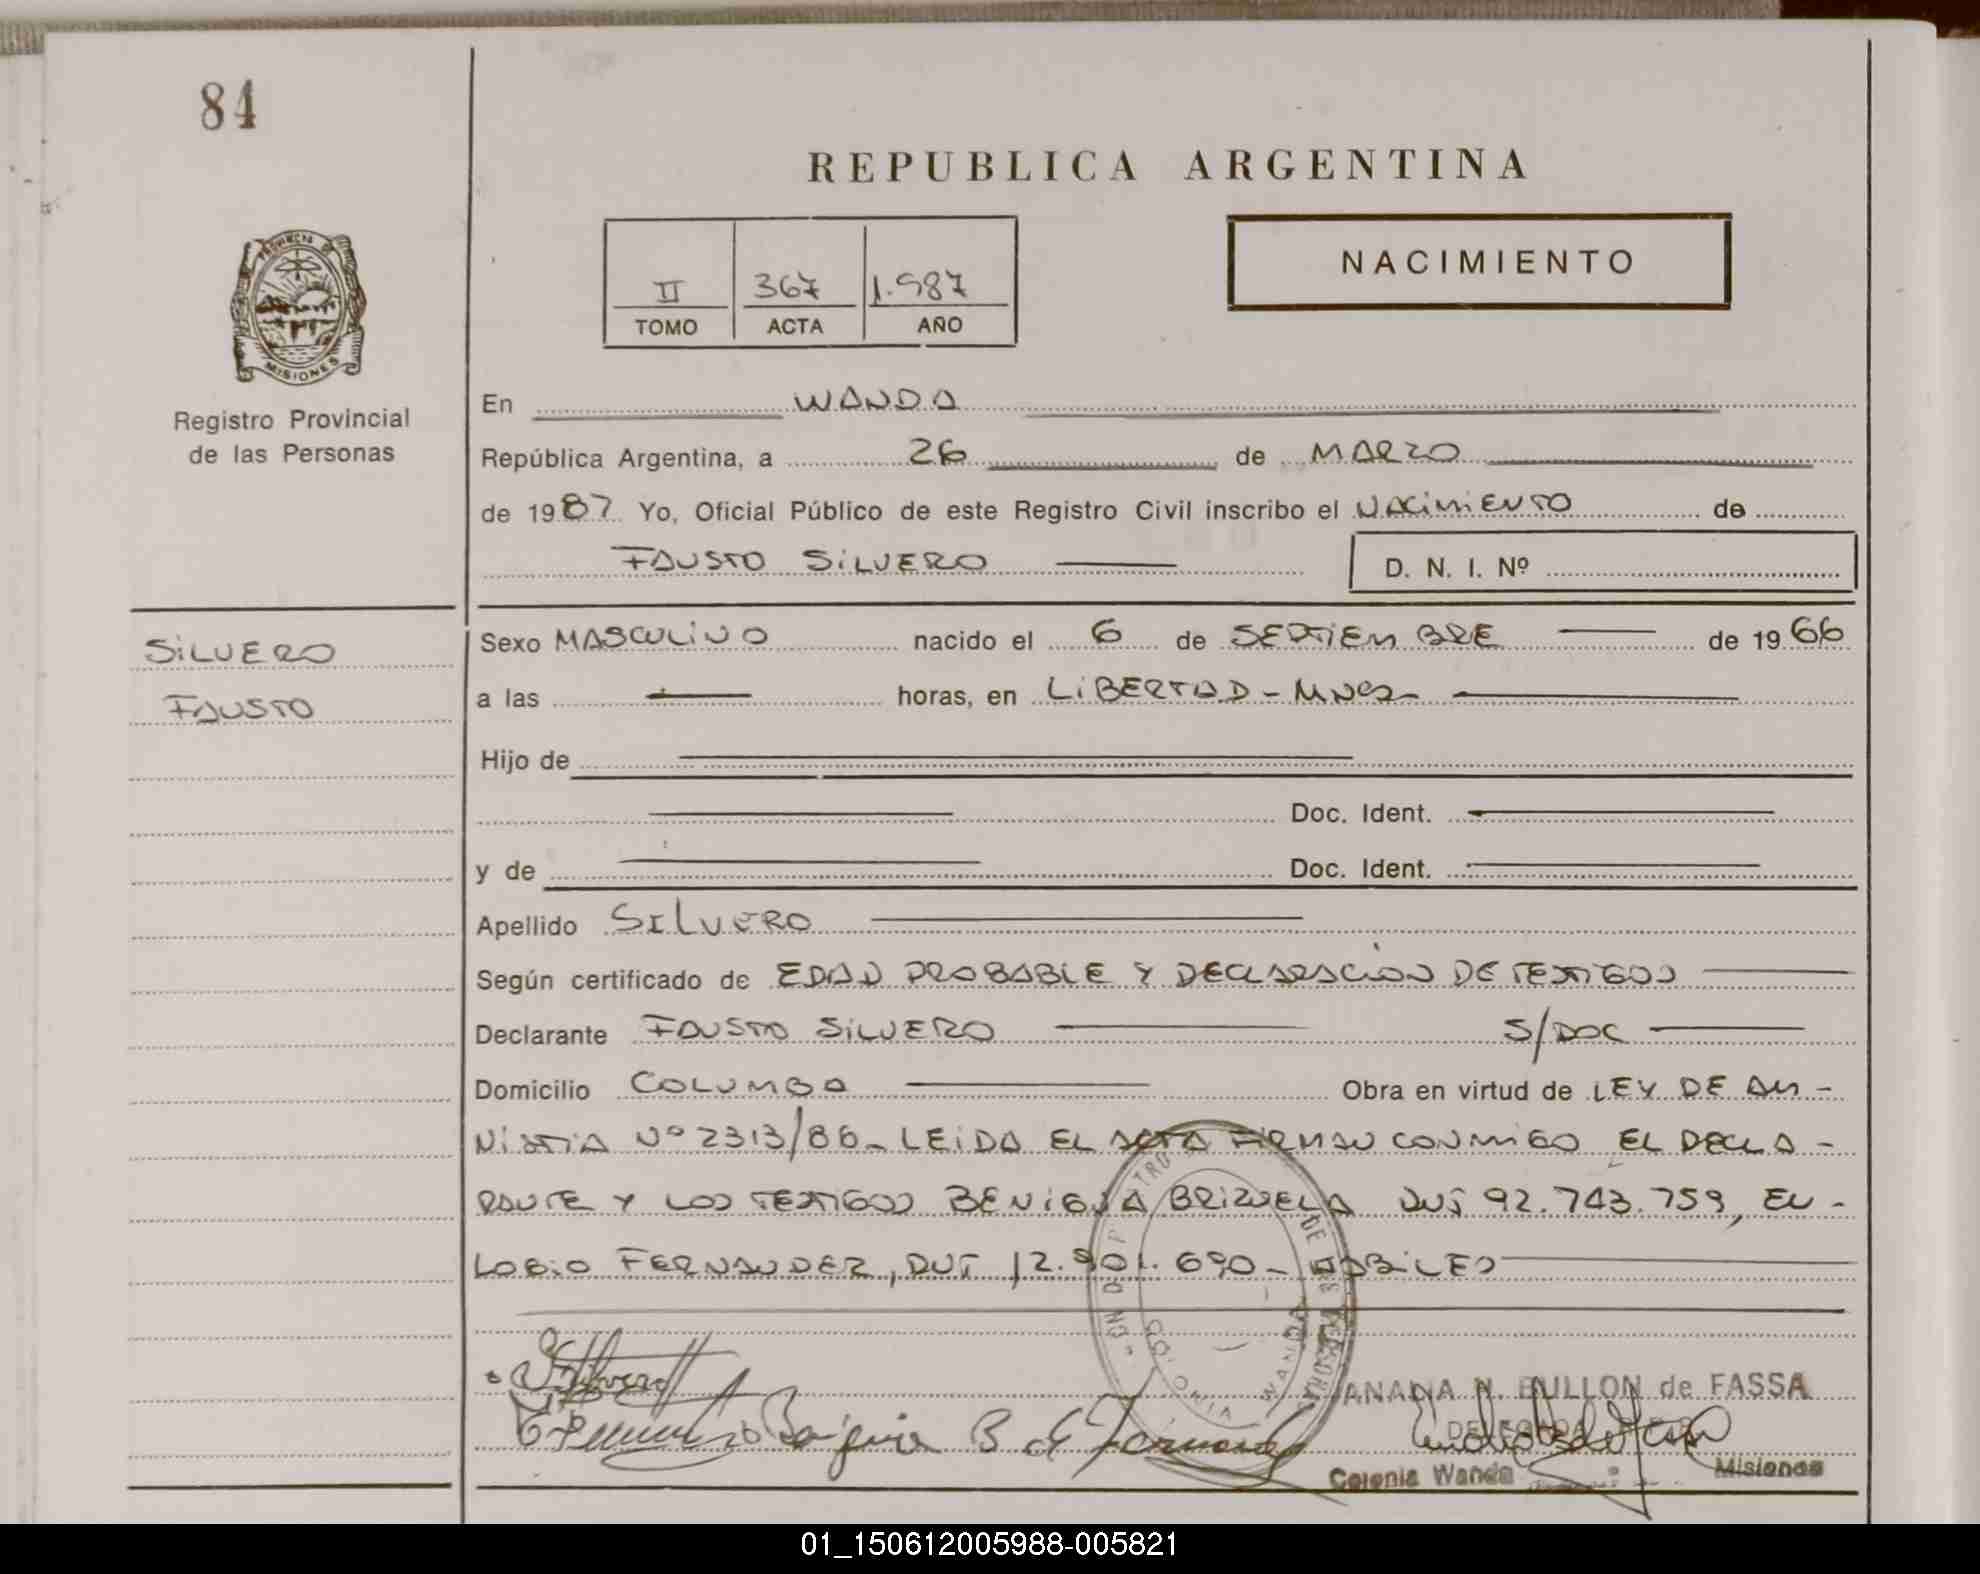 84
REPUBLICA ARGENTINA
PROVINCIA DE
MISIONES
Registro Provincial
de las Personas
II 367 1.987
TOMO ACTA AÑO
NACIMIENTO
En WANDA
República Argentina, a 26 de MARZO
de 1987 Yo, Oficial Público de este Registro Civil inscribo el NACIMIENTO de
FAUSTO SILVERO D. N. I. Nº
SILVERO
FAUSTO
Sexo MASCULINO nacido el 6 de SEPTIEMBRE de 1966
a las horas, en LIBERTAD - MNES-
Hijo de
Doc. Ident.
y de Doc. Ident.
Apellido SILVERO
Según certificado de EDAD PROBABLE Y DECLARACION DE TESTIGOS
Declarante FAUSTO SILVERO S/DOC
Domicilio COLUMBO Obra en virtud de LEY DE AM-
NISTIA Nº 2313/86- LEIDA EL ACTA FIRMAN CONMIGO EL DECLA-
RANTE Y LOS TESTIGOS BENIGNA BRIZUELA DNI 92.743.759, EU-
LOGIO FERNANDEZ, DNI 12.901.690- HABILES
COLONIA WANDA
ANALIA N. BULLON de FASSA
Benigna B de Fernandez
Colonia Wanda Misiones
01_150612005988-005821